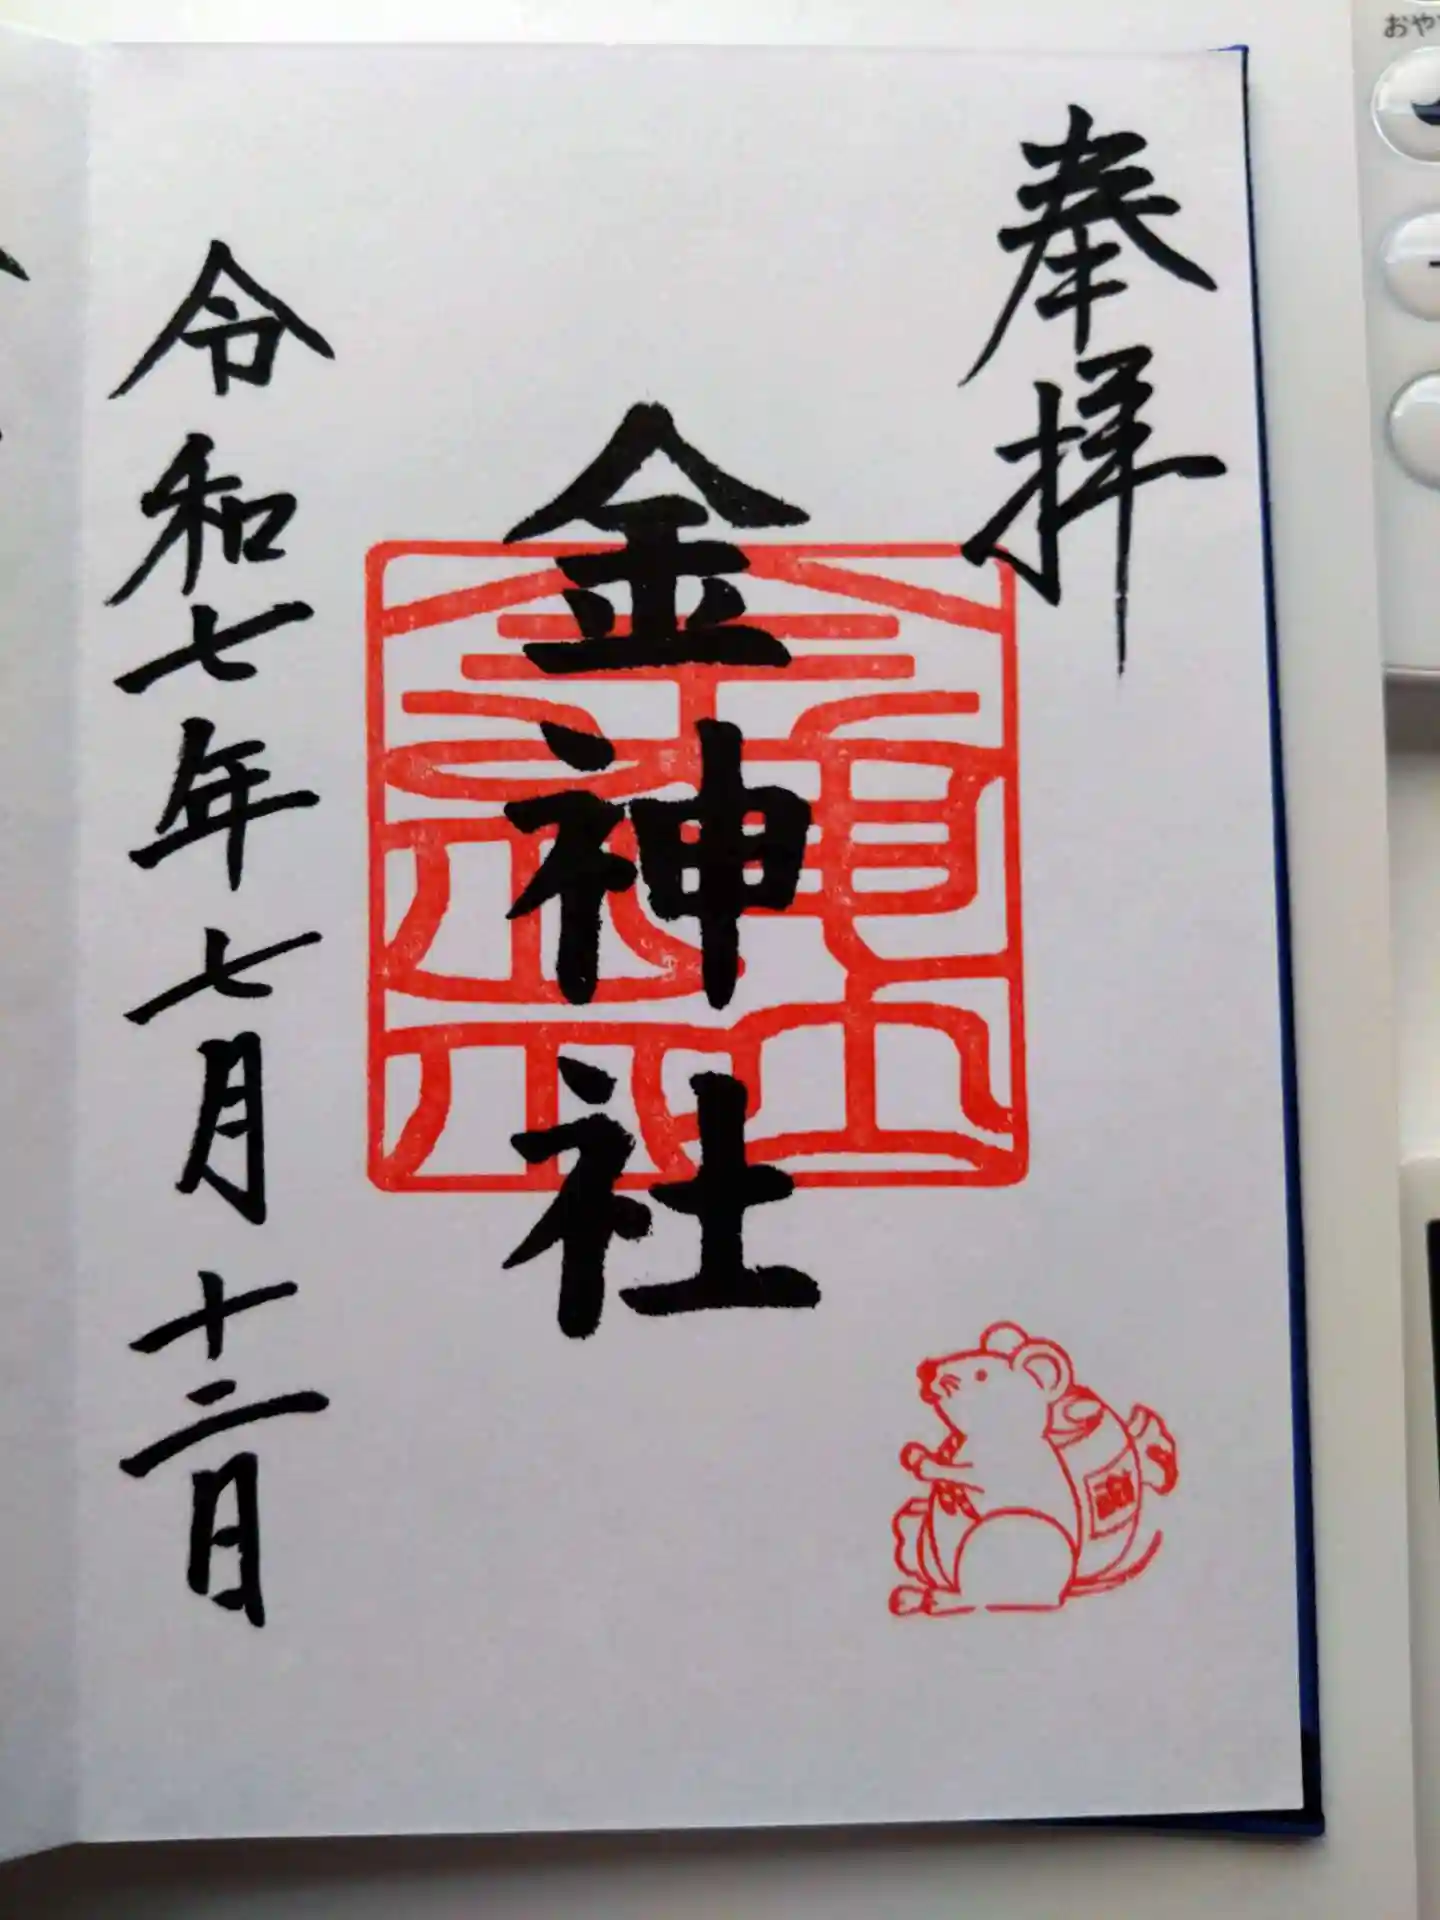 奉拝
金神社
令和七年七月十二日
おや